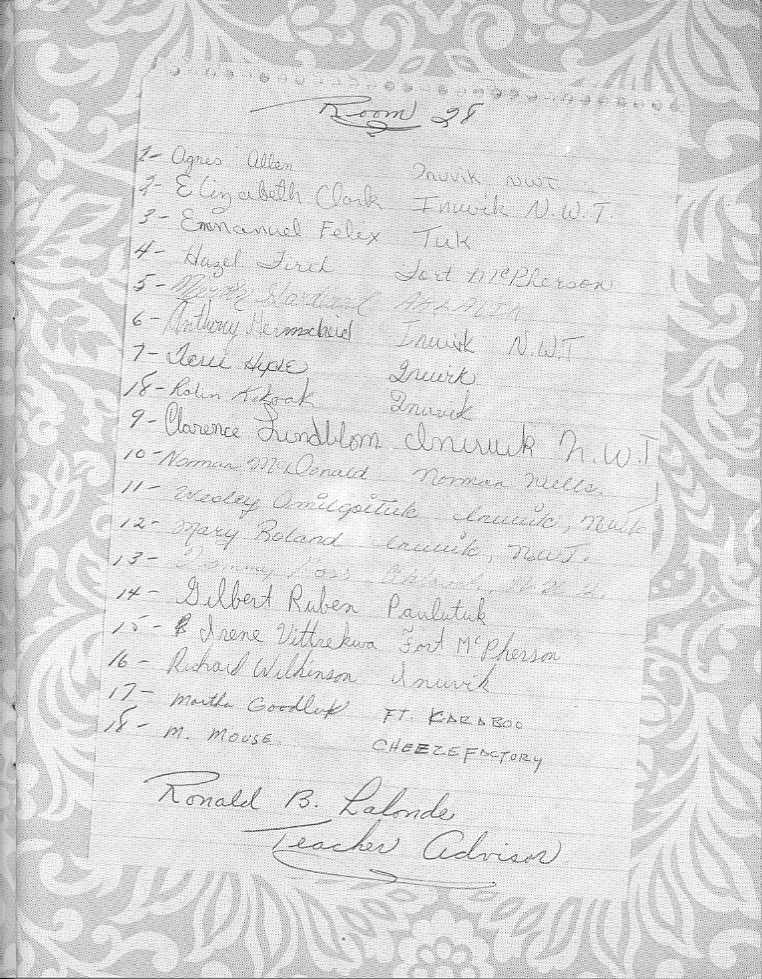 Room 28
1- Agnes Allen Inuvik, NWT
2- Elizabeth Clark Inuvik N.W.T.
3- Emmanuel Felix Tuk
4- Hazel Firth Fort McPherson
5- AKLAVIK
6- Anthony Inuvik N.W.T
7- Inuvik
18- Robin Kikoak Inuvik
9- Clarence Lundblom Inuvik N.W.T
10- Norman McDonald Norman Wells.
11- Wesley Inuvik, NWT
12- Mary Boland Inuvik, N.W.T.
13- Ross
14- Gilbert Ruben Paulutuk
15- Irene Vittrekwa Fort McPherson
16- Richard Wilkinson Inuvik
17- Martha Goodluk FT. KARABOO
18- M. MOUSE. CHEEZEFACTORY
Ronald B. Lalonde
Teacher Advisor